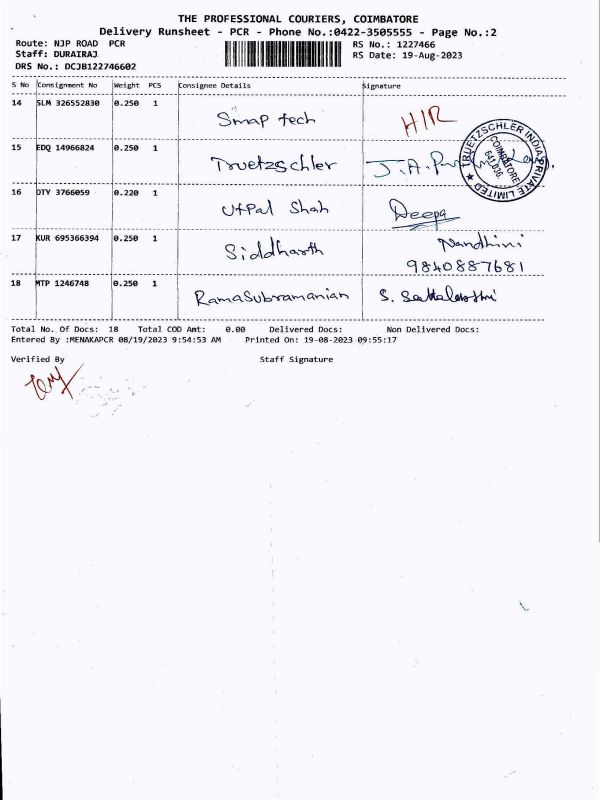 THE PROFESSIONAL COURIERS, COIMBATORE
Delivery Runsheet - PCR - Phone No.:0422-3505555 - Page No.:2
Route: NJP ROAD PCR
RS No.: 1227466
Staff: DURAIRAJ
RS Date: 19-Aug-2023
DRS No.: DCJB122746602
S No Consignment No Weight PCS Consignee Details Signature
14 SLM 326552830 0.250 1 Smap tech H/R
15 EDQ 14966824 0.250 1 Truetzschler J.A.
TRUETZSCHLER INDIA PRIVATE LIMITED ★
COIMBATORE
641 036.
16 OTY 3766059 0.220 1 Utpal Shah Deepa
17 KUR 695366394 0.250 1 Siddharth Nandhini
9840887681
18 MTP 1246748 0.250 1 RamaSubramanian S.
Total No. Of Docs: 18 Total COD Amt: 0.00 Delivered Docs: Non Delivered Docs:
Entered By :MENAKAPCR 08/19/2023 9:54:53 AM Printed On: 19-08-2023 09:55:17
Verified By Staff Signature